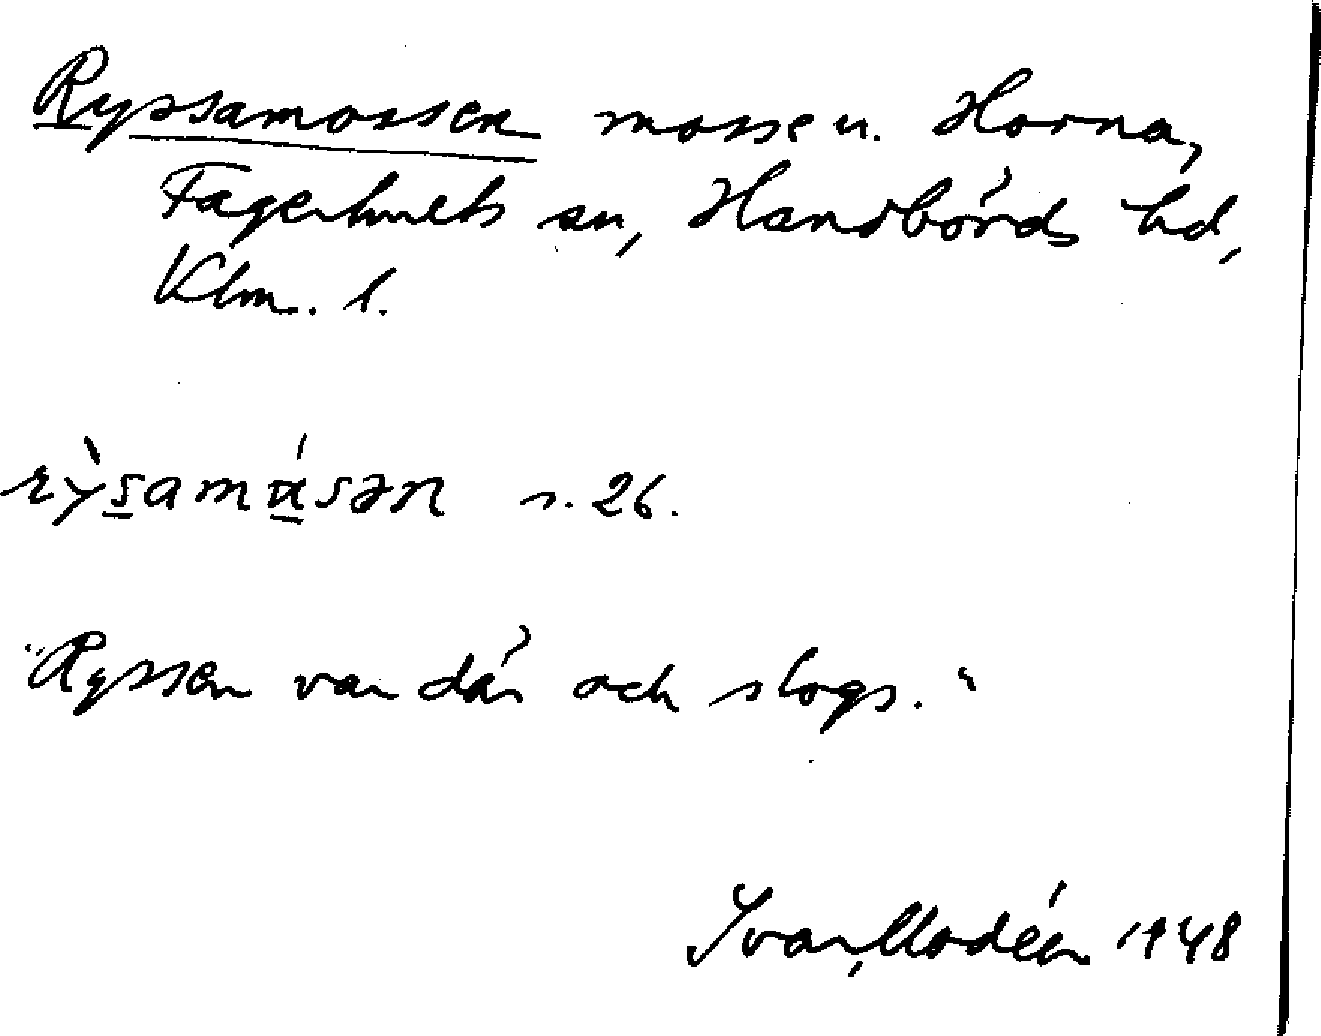 Ryssamossen mosse u. Horna,
Fagerhults sn, Handbörds hd,
Klm. l.
rỳsamúsən s. 26.
"Ryssen var där och slogs."
Ivar Modéer 1948